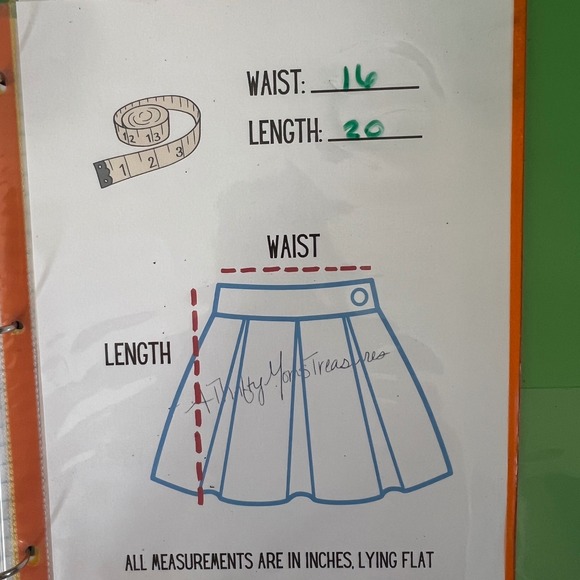 WAIST: 16
LENGTH: 20
12 13
1 2 3
WAIST
LENGTH
AThriftyMomsTreasures
ALL MEASUREMENTS ARE IN INCHES, LYING FLAT